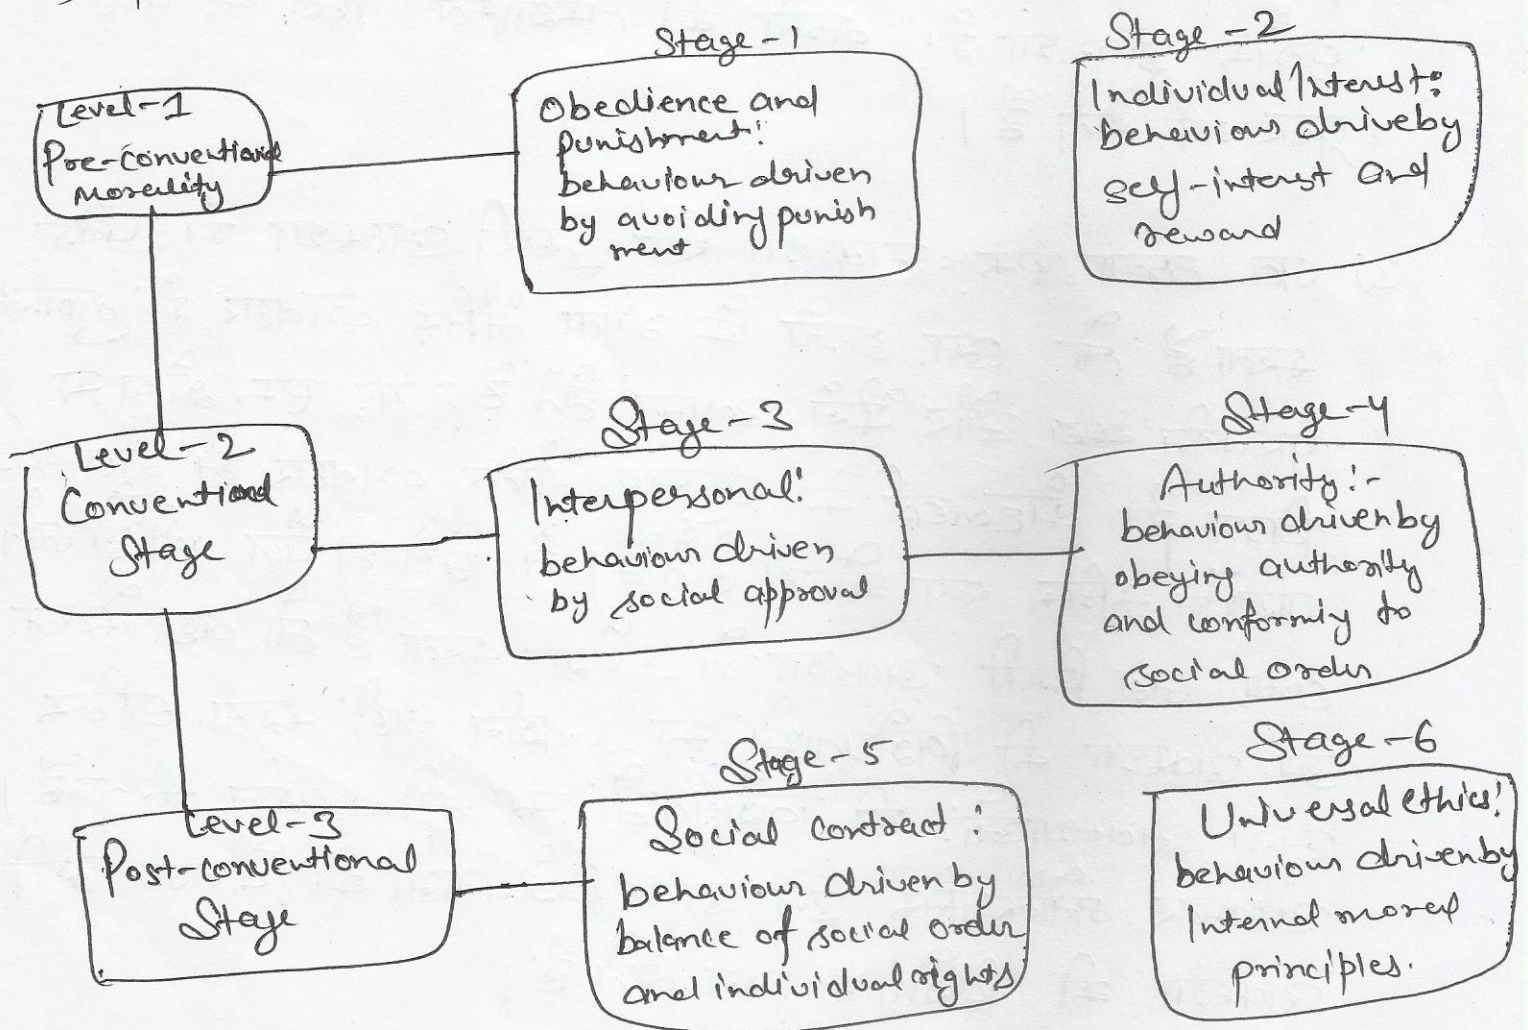 Stage-1
Stage-2
Level-1
Pre-conventional
Morality
Obedience and
punishment:
behaviour driven
by avoiding punish
ment
Individual Interest:
behaviour driveby
self-interest and
reward
Stage-3
Stage-4
Level-2
Conventional
Stage
Interpersonal:
behaviour driven
by social approval
Authority:-
behaviour driven by
obeying authority
and conformiy to
social order
Stage-5
Stage-6
Level-3
Post-conventional
Stage
Social contract:
behaviour driven by
balance of social order
and individual rights
Universal ethics:
behaviour driven by
Internal moral
principles.